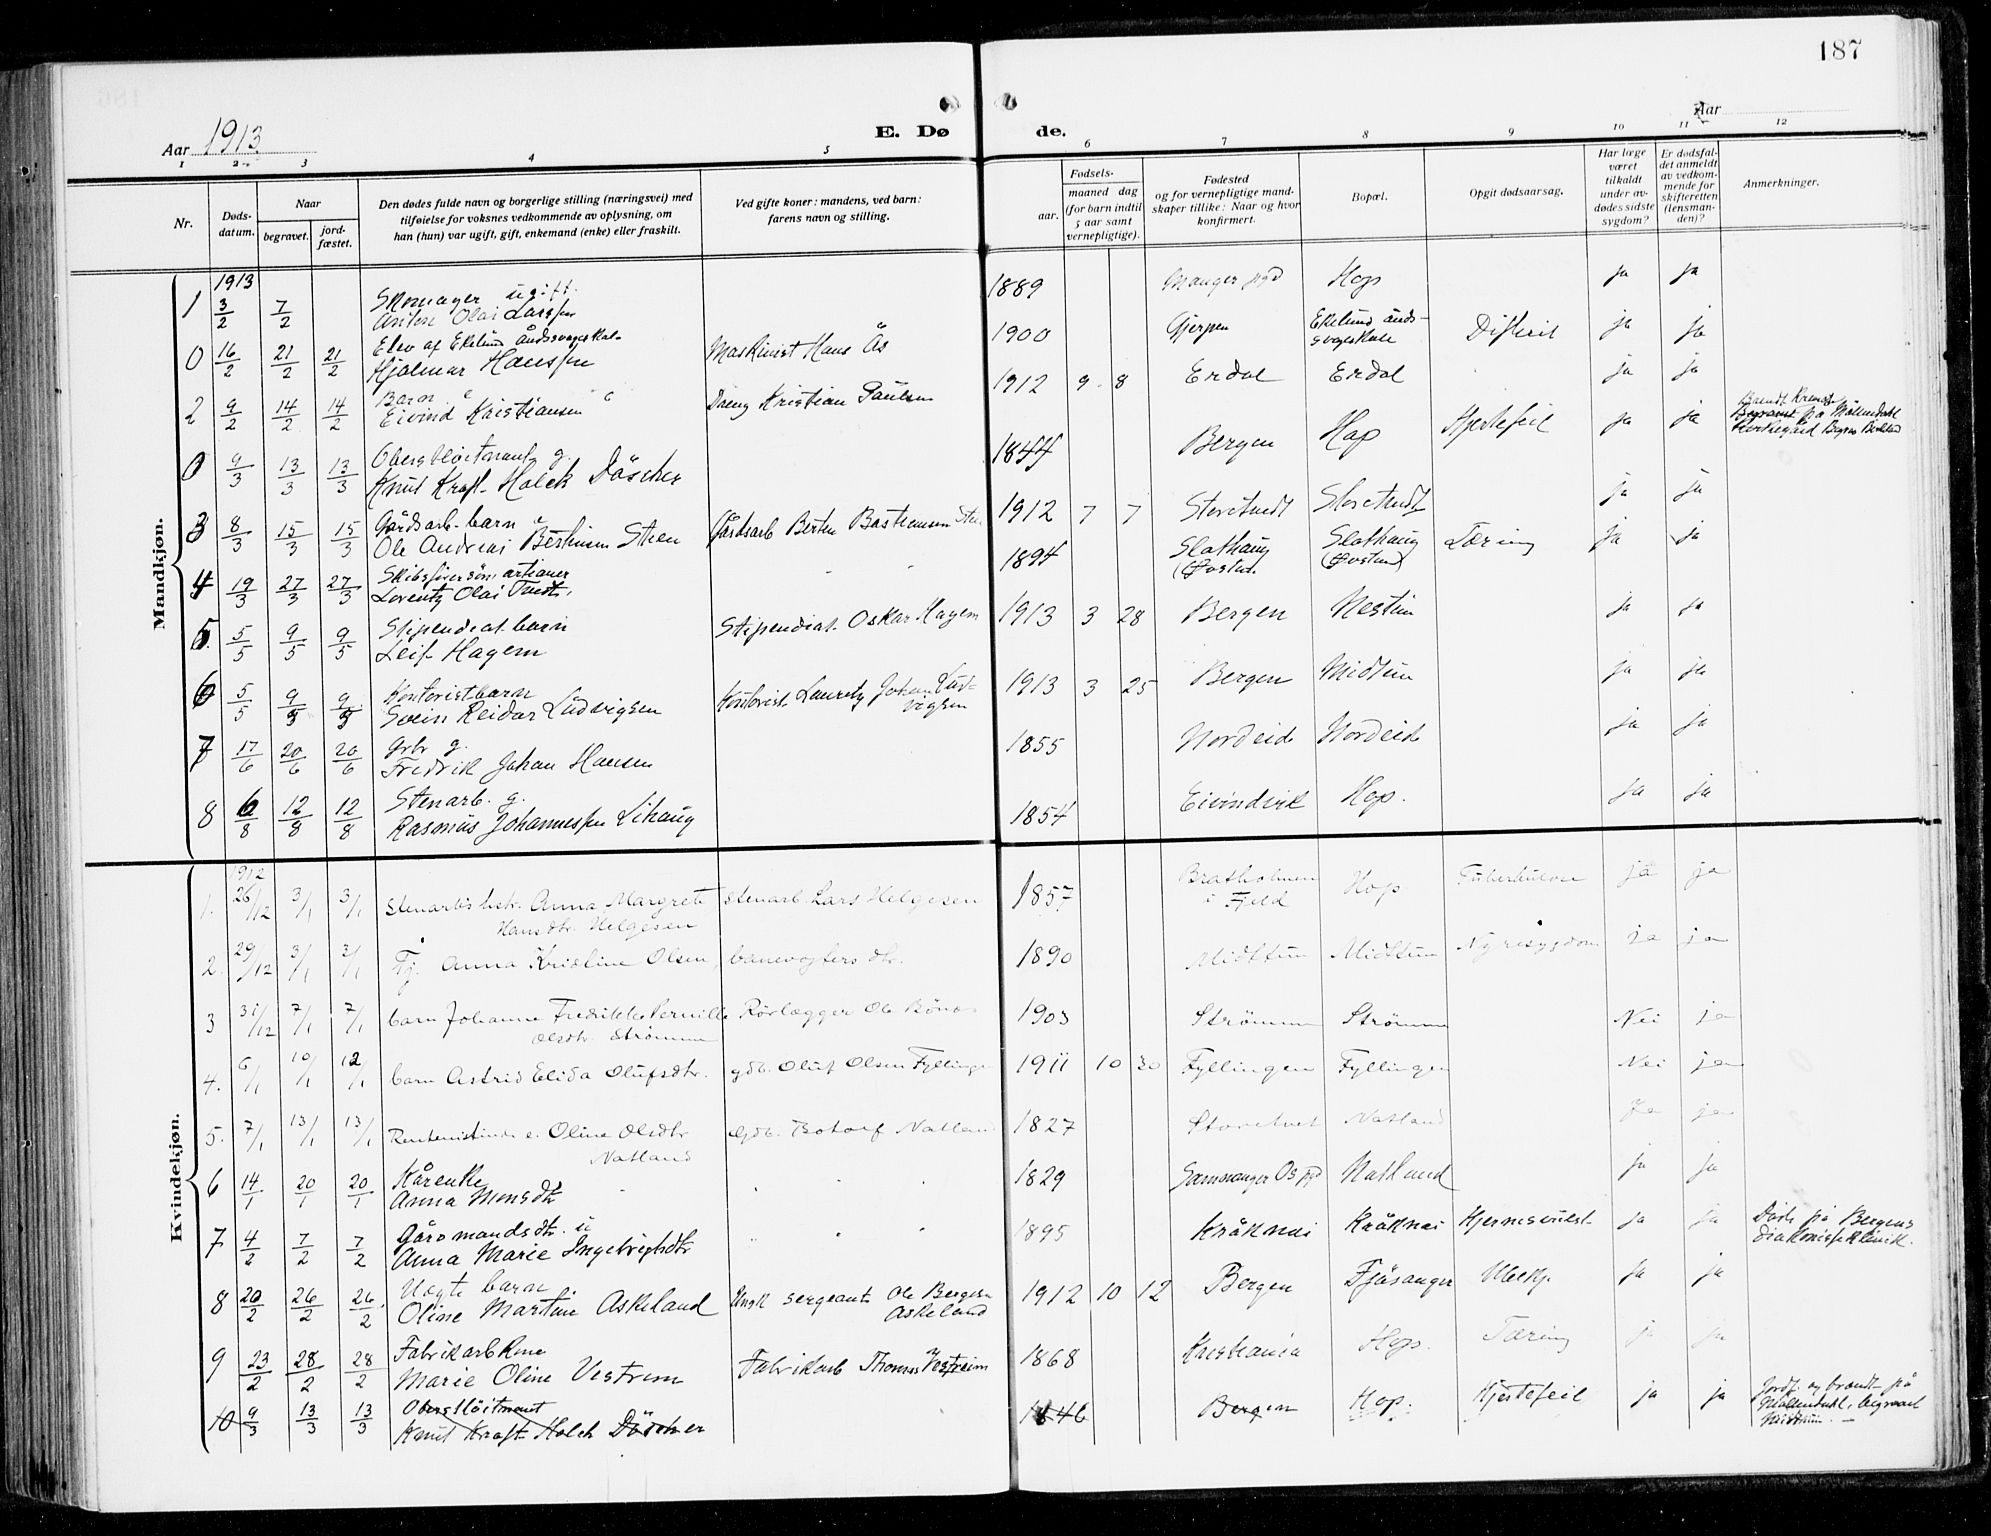 187
Aar 1913
E. Dø
de.
Aar
1 2 3 4 5 6 7 8 9 10 11 12
Nr.
Døds-
datum.
Naar
begravet.
jord-
fæstet.
Den dødes fulde navn og borgerlige stilling (næringsvei) med
tilføielse for voksnes vedkommende av oplysning, om
han (hun) var ugift, gift, enkemand (enke) eller fraskilt.
Ved gifte koner: mandens, ved barn:
farens navn og stilling.
Fødsels-
aar.
maaned dag
(for barn indtil
5 aar samt
vernepligtige).
Fødested
og for vernepligtige mand-
skaper tillike: Naar og hvor
konfirmert.
Bopæl.
Opgit dødsaarsag.
Har læge
været
tilkaldt
under av-
dødes sidste
sygdom?
Er dødsfal-
det anmeldt
av vedkom-
mende for
skifteretten
(lensman-
den)?
Anmerkninger.
Mandkjøn.
1913
1 3/2 7/2 Skomager ugift. 1889 Manger pgd Hop ja ja
Anton Olai Larssen
0 16/2 21/2 21/2 Elev af Ekelund åndssvageskole Maskinist Hans Ås 1900 Gjerpen Ekelund ånds-
svageskole Difterit ja ja
Hjalmar Hanssen
2 9/2 14/2 14/2 Barn Dreng Kristian Paulsen 1912 9 8 Erdal Erdal ja ja
Eivind Kristiansen
0 9/3 13/3 13/3 Oberstløitnant g. 1844 Bergen Hop Hjertefeil ja ja
Knut Kraft Holck Döscher
på Møllendahl
3 8/3 15/3 15/3 Gårdsarb. barn Gårdsarb Berten Bastiansen 1912 7 7 Storetvedt Storetvedt ja ja
Ole Andreas Bertinsen Steen
4 19/3 27/3 27/3 1894 Slothaug Slothaug Tæring ja ja
Lorentz Olai
5 5/5 9/5 9/5 Stipendiat barn Stipendiat Oskar Hagem 1913 3 28 Bergen Nestun ja ja
Leif Hagem
6 5/5 9/5 9/5 Kontoristbarn Kontorist Lauretz Johan Lud-
vigsen 1913 3 25 Bergen Midtun ja ja
Svein Reidar Ludvigsen
7 17/6 20/6 20/6 Grbr g. 1855 Nordeide Nordeide ja ja
Fredrik Johan Hansen
8 6/8 12/8 12/8 Stenarb. g. 1854 Eivindvik Hop. ja ja
Rasmus Johannessen Lihaug
Kvindekjøn.
1912
1. 26/12 3/1 3/1 Stenarb.s hstr. Anna Margrete Stenarb. Lars Helgesen 1857 Bratholmen
i Fjeld Hop Tuberkulose ja ja
Hansdtr. Helgesen
2. 29/12 3/1 3/1 Tj. Anna Kristine Olsen, banevogters dtr. 1890 Midttun Midttun Nyresygdom ja ja
3 31/12 7/1 7/1 barn Johanne Fredrikke Pernille Rørlægger Ole 1903 Strømme Strømme Nei ja
Olsdtr. Strømme
4. 6/1 10/1 12/1 barn Astrid Elida Olufsdtr. gdb. Oluf Olsen Fyllingen 1911 10 30 Fyllingen Fyllingen Nei ja
5. 7/1 13/1 13/1 e. Oline Olsdtr Gdb. Botolf Natland 1827 Storetvet Natland Ja ja
Natland
6 14/1 20/1 20/1 Kårenke 1829 Samnanger Os pgd Natland ja ja
Anna Monsdtr
7 4/2 7/2 7/2 Gårdmandsdtr. u 1895 Kråknes Kråknes Hjernesvulst ja ja Døde på Bergens
Anna Marie Ingebrigtsdtr
8 20/2 26/2 26/2 Uegte barn Ungk sergeant Ole Bergesen
Askeland 1912 10 12 Bergen Fjøsanger ja ja
Oline Martine Askeland
9 23/2 28/2 28/2 Fabrikarb Kone Fabrikarb Thomas Vestreim 1868 Kristiania Hop. Tæring ja ja
Marie Oline Vestrem
10 9/3 13/3 13/3 Oberstløitnant 1846 Bergen Hop. Hjertefeil ja ja Jordf. og brændt på
Møllendahl, begravet
Knut Kraft Holck Döscher